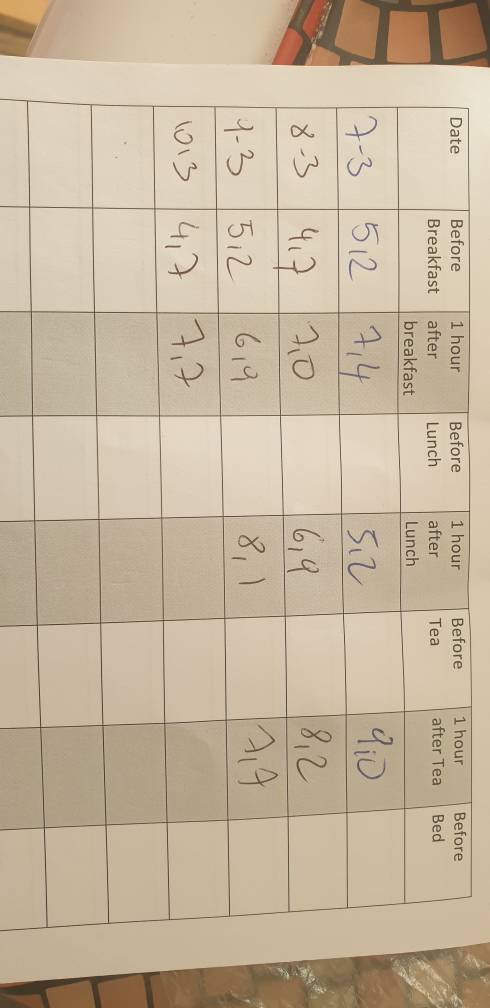 Date Before Breakfast 1 hour after breakfast Before Lunch 1 hour after Lunch Before Tea 1 hour after Tea Before Bed
7-3 5,2 7,4 5,2 9,0
8-3 4,7 7,0 6,9 8,2
9-3 5,2 6,9 8,1 7,7
10-3 4,7 7,7